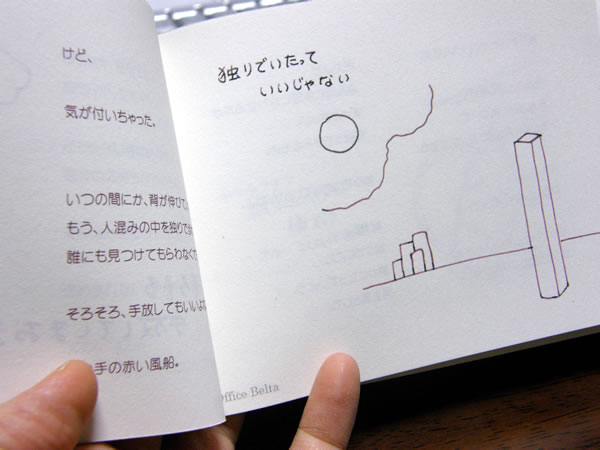 けど、
気が付いちゃった。
いつの間にか、背が伸び
もう、人混みの中を独りで
誰にも見つけてもらわなく
そろそろ、手放してもいい
手の赤い風船。
独りでいたって
いいじゃない
Office Belta